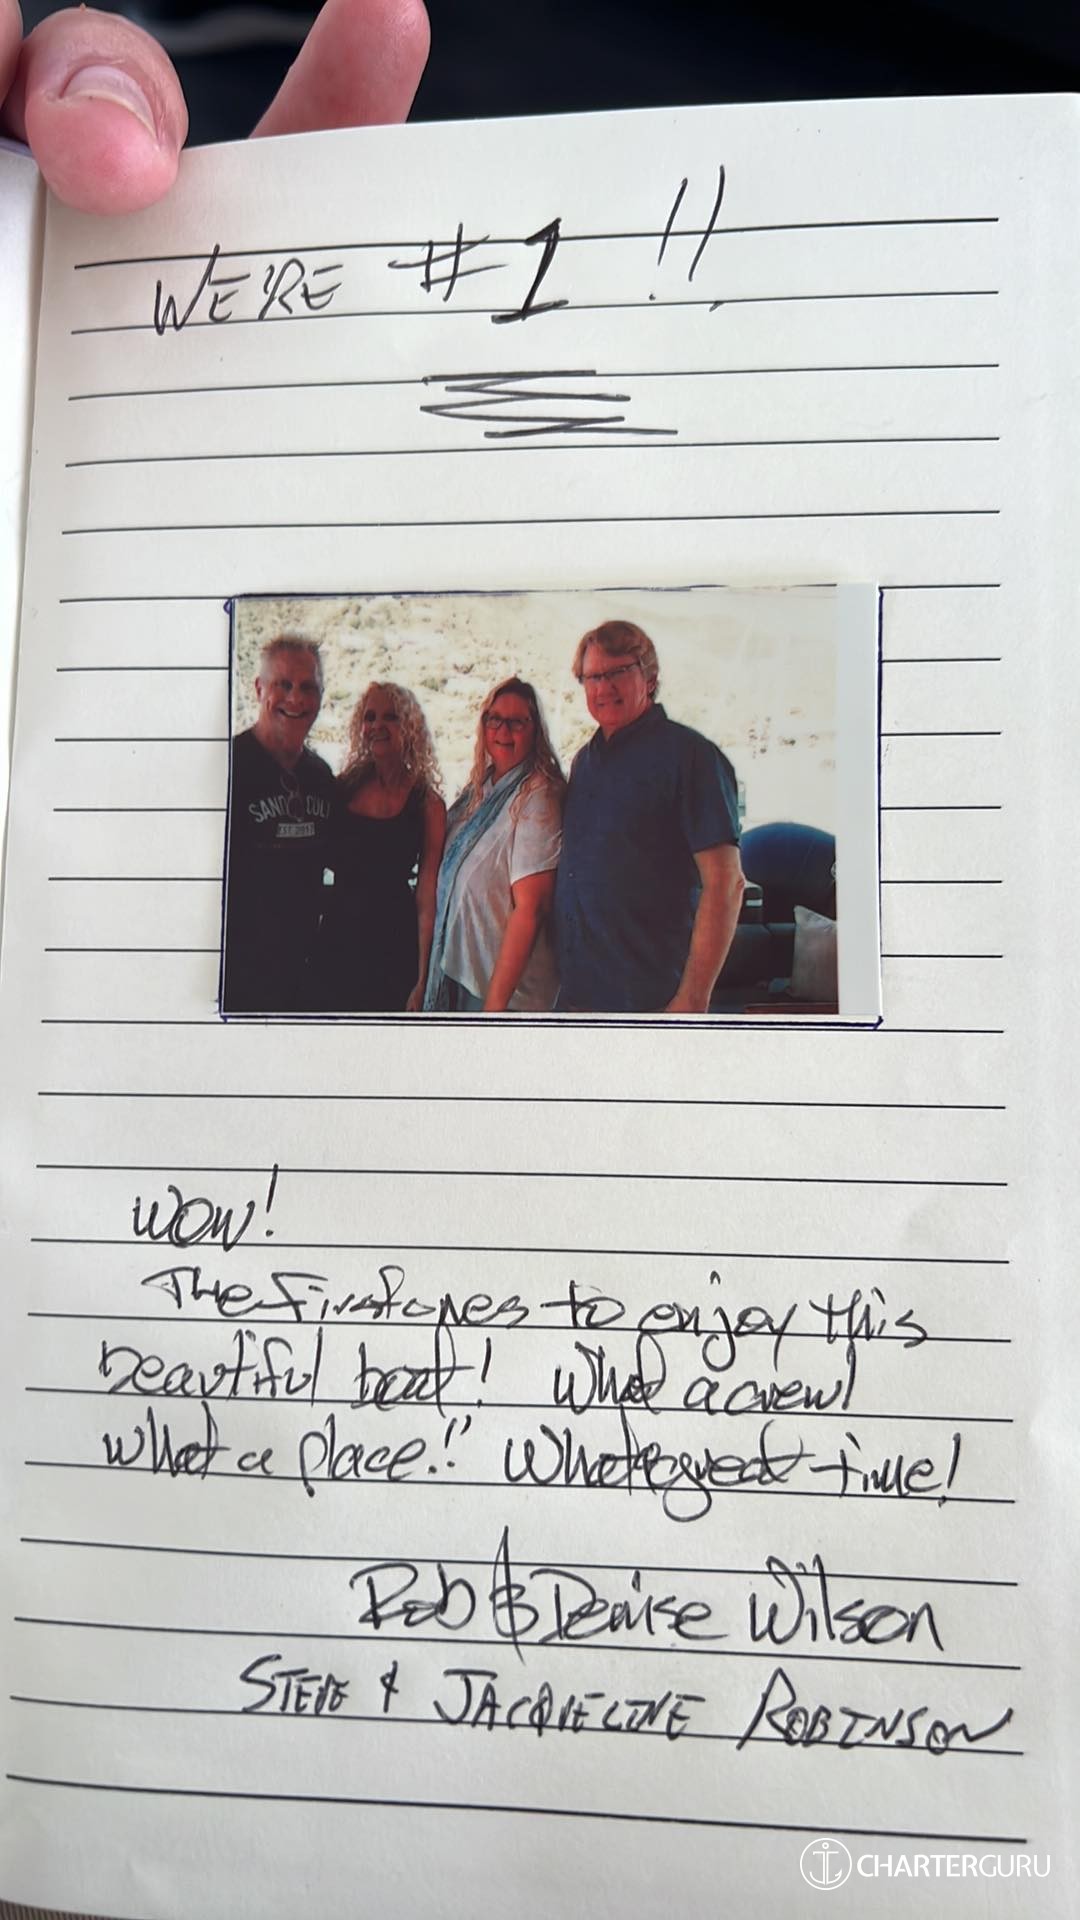 WE'RE #1 !!
SAND DOLL
EST. 2017
WOW!
The First ones to enjoy this
beautiful boat! What a crew!
what a place!! What a great time!
Rob & Denise Wilson
STEVE & JACQUELINE ROBINSON
CHARTERGURU